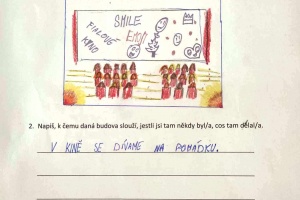 SMILE
FIALOVÉ
KINO
EMOJI
2. Napiš, k čemu daná budova slouží, jestli jsi tam někdy byl/a, cos tam dělal/a.
V KINĚ SE DÍVÁME NA POHÁDKU.